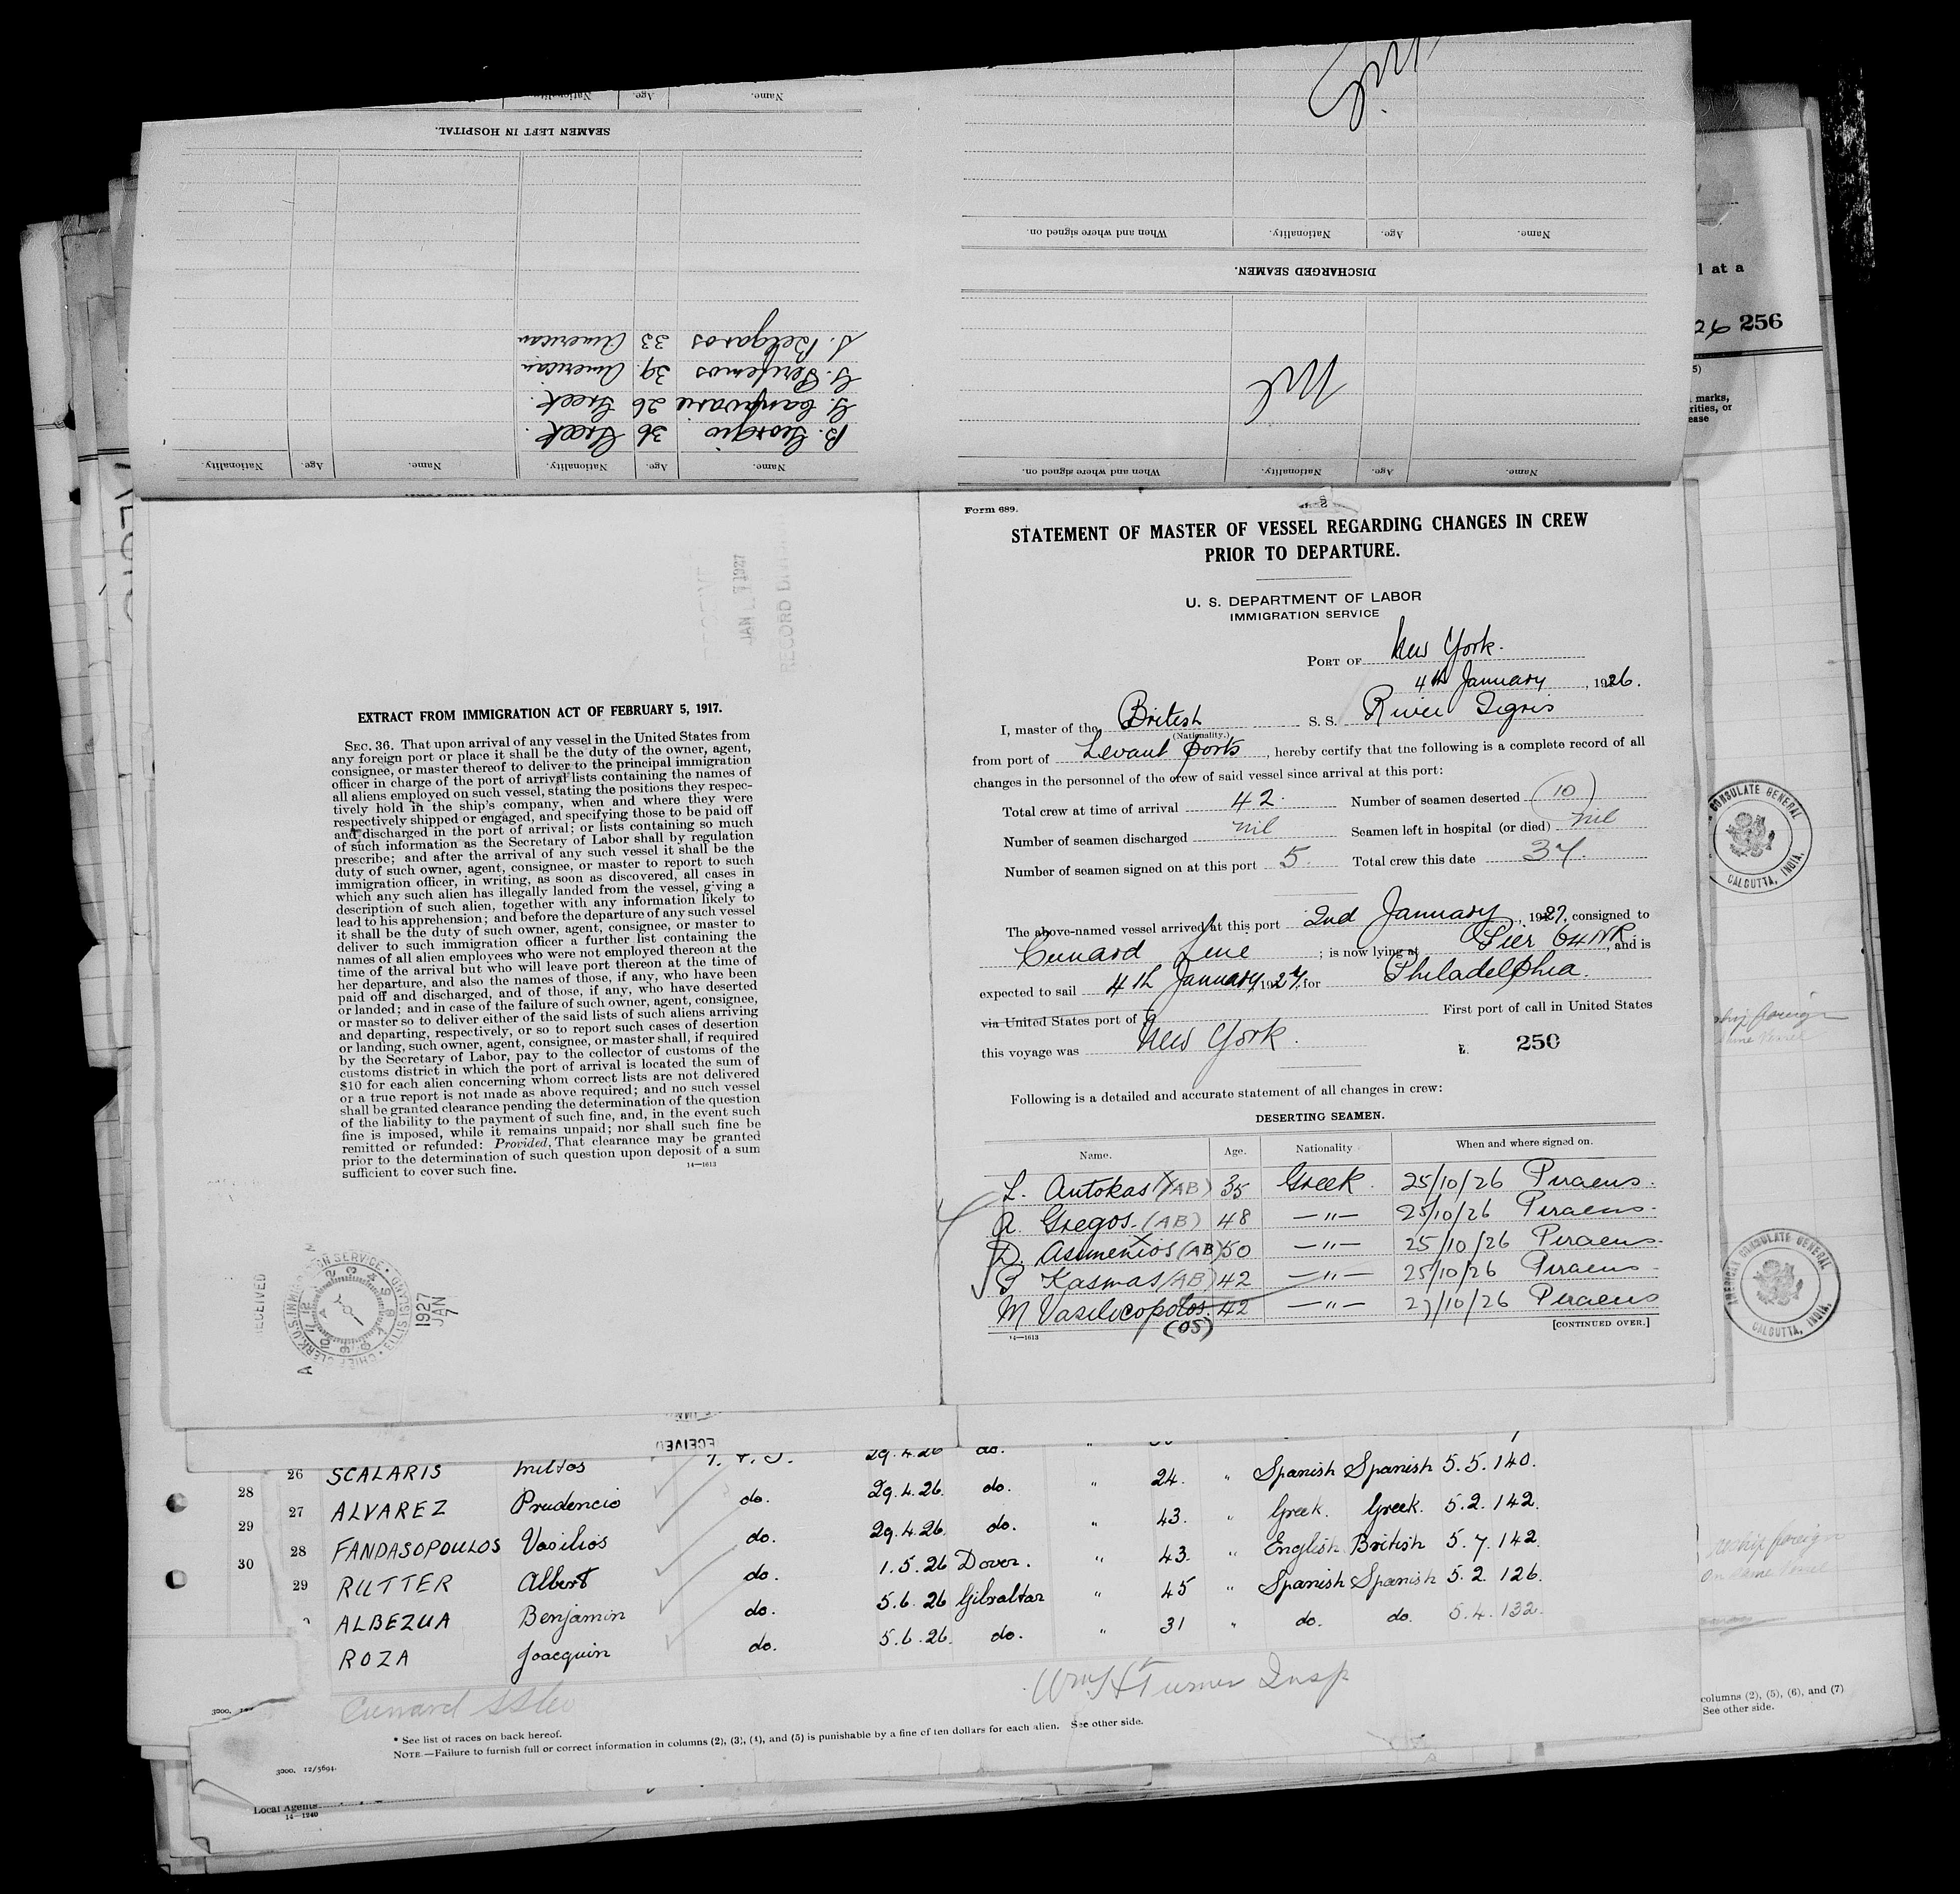 SEAMEN LEFT IN HOSPITAL.
Name. Age. Nationality.
DISCHARGED SEAMEN.
Name. Age. Nationality. When and where signed on.
Nil
Name. Age. Nationality. When and where signed on.
Name. Age. Nationality. Name. Age. Nationality.
B. Georgio 36 Greek.
G. 26 Greek.
G. 39. American
S. 33 American
l at a
26 256
marks,
rities, or
ease
Form 689.
STATEMENT OF MASTER OF VESSEL REGARDING CHANGES IN CREW
PRIOR TO DEPARTURE.
U. S. DEPARTMENT OF LABOR
IMMIGRATION SERVICE
PORT OF New York.
4th January, 1926.
I, master of the British S. S. River Tigris
(Nationality.)
from port of Levant ports, hereby certify that the following is a complete record of all
changes in the personnel of the crew of said vessel since arrival at this port:
Total crew at time of arrival 42. Number of seamen deserted (10)
Number of seamen discharged nil Seamen left in hospital (or died) nil
Number of seamen signed on at this port 5. Total crew this date 37.
The above-named vessel arrived at this port 2nd January, 1927, consigned to
Cunard Line; is now lying at Pier 64 NR, and is
expected to sail 4th January, 1927, for Philadelphia.
via United States port of First port of call in United States
this voyage was New York.
250
Following is a detailed and accurate statement of all changes in crew:
DESERTING SEAMEN.
Name. Age. Nationality When and where signed on.
L. Antokas (AB) 35 Greek. 25/10/26 Piraeus.
A. Gregos. (AB) 48 —"— 25/10/26 Piraeus.
D. Asimenios (AB) 50 —"— 25/10/26 Piraeus.
P Kasmas (AB) 42 —"— 25/10/26 Piraeus
M Vasilicopolos. 42 —"— 27/10/26 Piraeus
(OS)
14—1613 [CONTINUED OVER.]
JAN 7 1927
RECORD DIVISION
EXTRACT FROM IMMIGRATION ACT OF FEBRUARY 5, 1917.
SEC. 36. That upon arrival of any vessel in the United States from
any foreign port or place it shall be the duty of the owner, agent,
consignee, or master thereof to deliver to the principal immigration
officer in charge of the port of arrival lists containing the names of
all aliens employed on such vessel, stating the positions they respec-
tively hold in the ship's company, when and where they were
respectively shipped or engaged, and specifying those to be paid off
and discharged in the port of arrival; or lists containing so much
of such information as the Secretary of Labor shall by regulation
prescribe; and after the arrival of any such vessel it shall be the
duty of such owner, agent, consignee, or master to report to such
immigration officer, in writing, as soon as discovered, all cases in
which any such alien has illegally landed from the vessel, giving a
description of such alien, together with any information likely to
lead to his apprehension; and before the departure of any such vessel
it shall be the duty of such owner, agent, consignee, or master to
deliver to such immigration officer a further list containing the
names of all alien employees who were not employed thereon at the
time of the arrival but who will leave port thereon at the time of
her departure, and also the names of those, if any, who have been
paid off and discharged, and of those, if any, who have deserted
or landed; and in case of the failure of such owner, agent, consignee,
or master so to deliver either of the said lists of such aliens arriving
and departing, respectively, or so to report such cases of desertion
or landing, such owner, agent, consignee, or master shall, if required
by the Secretary of Labor, pay to the collector of customs of the
customs district in which the port of arrival is located the sum of
$10 for each alien concerning whom correct lists are not delivered
or a true report is not made as above required; and no such vessel
shall be granted clearance pending the determination of the question
of the liability to the payment of such fine, and, in the event such
fine is imposed, while it remains unpaid; nor shall such fine be
remitted or refunded: Provided, That clearance may be granted
prior to the determination of such question upon deposit of a sum
sufficient to cover such fine.
14—1613
RECEIVED
1927 JAN 7
CONSULATE GENERAL
CALCUTTA, INDIA.
AMERICAN CONSULATE GENERAL
CALCUTTA, INDIA.
26 SCALARIS Miltos 29.4.26 do.
28 27 ALVAREZ Prudencio do. 29.4.26. do. " 24. " Spanish Spanish 5.5. 140.
29 28 FANDASOPOULOS Vasilios do. 29.4.26. do. " 43. " Greek. Greek. 5.2. 142.
30 29 RUTTER Albert do. 1.5.26 Dover. " 43. " English British 5.7. 142.
ALBEZUA Benjamin do. 5.6.26 Gibraltar " 45 " Spanish Spanish 5.2. 126.
ROZA Joacquin do. 5.6.26. do. " 31 " do. do. 5.4. 132.
Cunard SS Co
Wm H Turner Insp
* See list of races on back hereof.
NOTE.—Failure to furnish full or correct information in columns (2), (3), (4), and (5) is punishable by a fine of ten dollars for each alien. See other side.
3000. 12/5694.
columns (2), (5), (6), and (7)
See other side.
Local Agents
14—1240